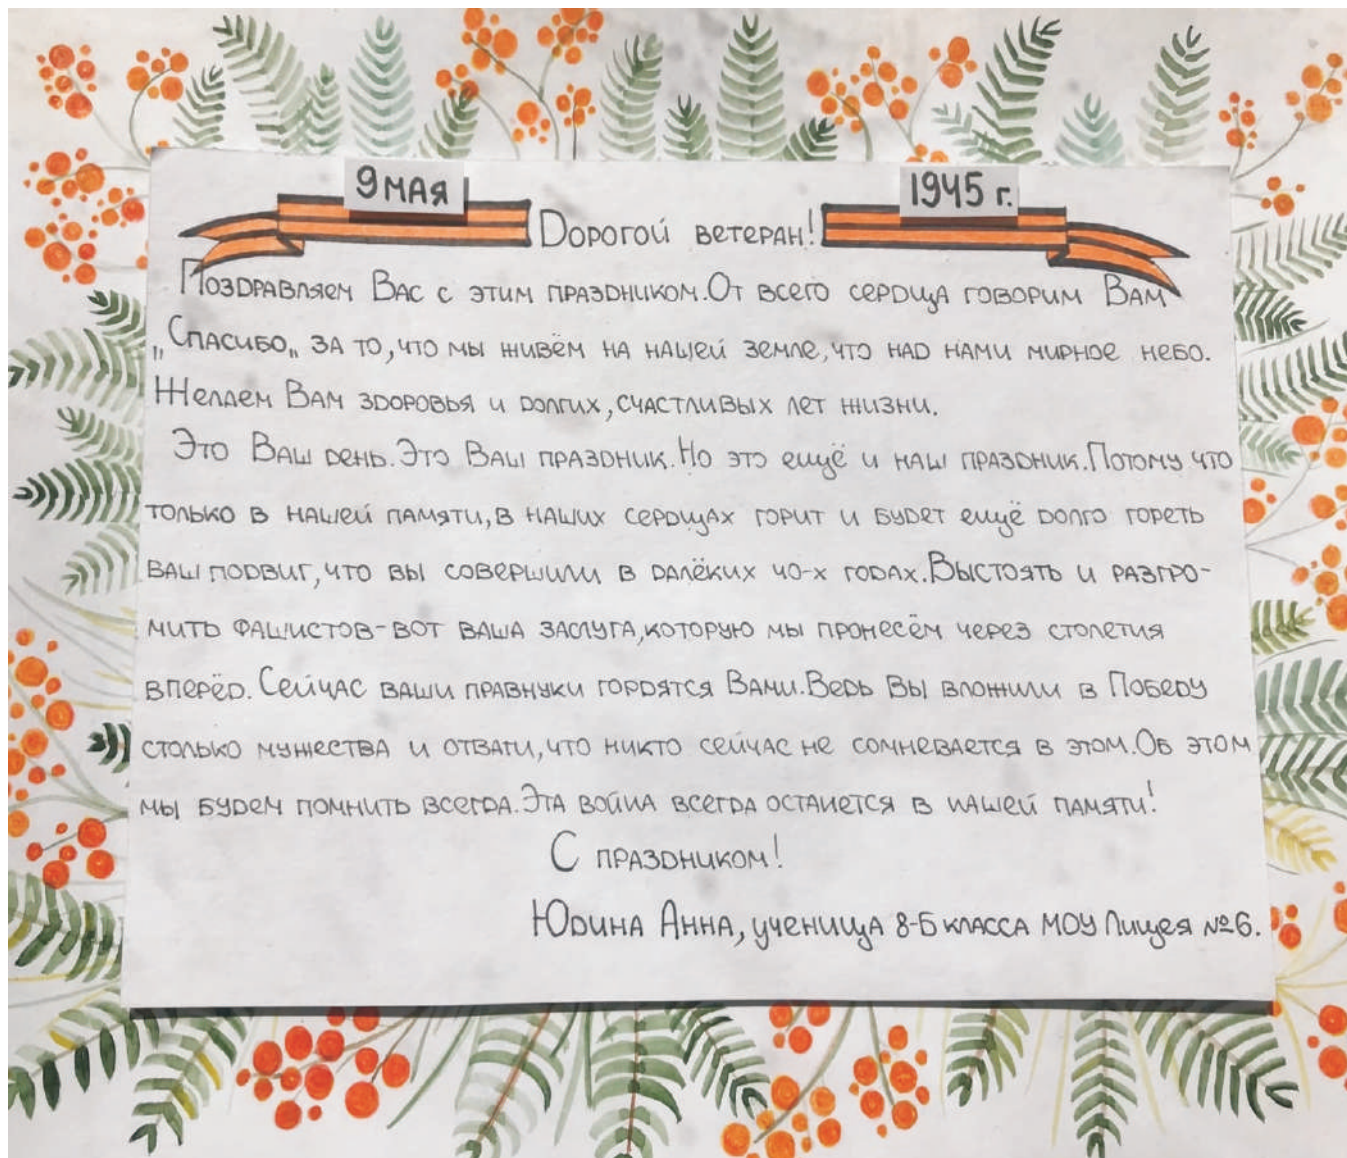 9 МАЯ
1945 г.
Дорогой ветеран!
Поздравляем Вас с этим праздником. От всего сердца говорим Вам
„Спасибо„ за то, что мы живём на нашей земле, что над нами мирное небо.
Желаем Вам здоровья и долгих, счастливых лет жизни.
Это Ваш день. Это Ваш праздник. Но это ещё и наш праздник. Потому что
только в нашей памяти, в наших сердцах горит и будет ещё долго гореть
ваш подвиг, что вы совершили в далёких 40-х годах. Выстоять и разгро-
мить фашистов-вот ваша заслуга, которую мы пронесём через столетия
вперёд. Сейчас ваши правнуки гордятся Вами. Ведь Вы вложили в Победу
столько мужества и отваги, что никто сейчас не сомневается в этом. Об этом
мы будем помнить всегда. Эта война всегда останется в нашей памяти!
С праздником!
Юдина Анна, ученица 8-Б класса МОУ Лицея №6.